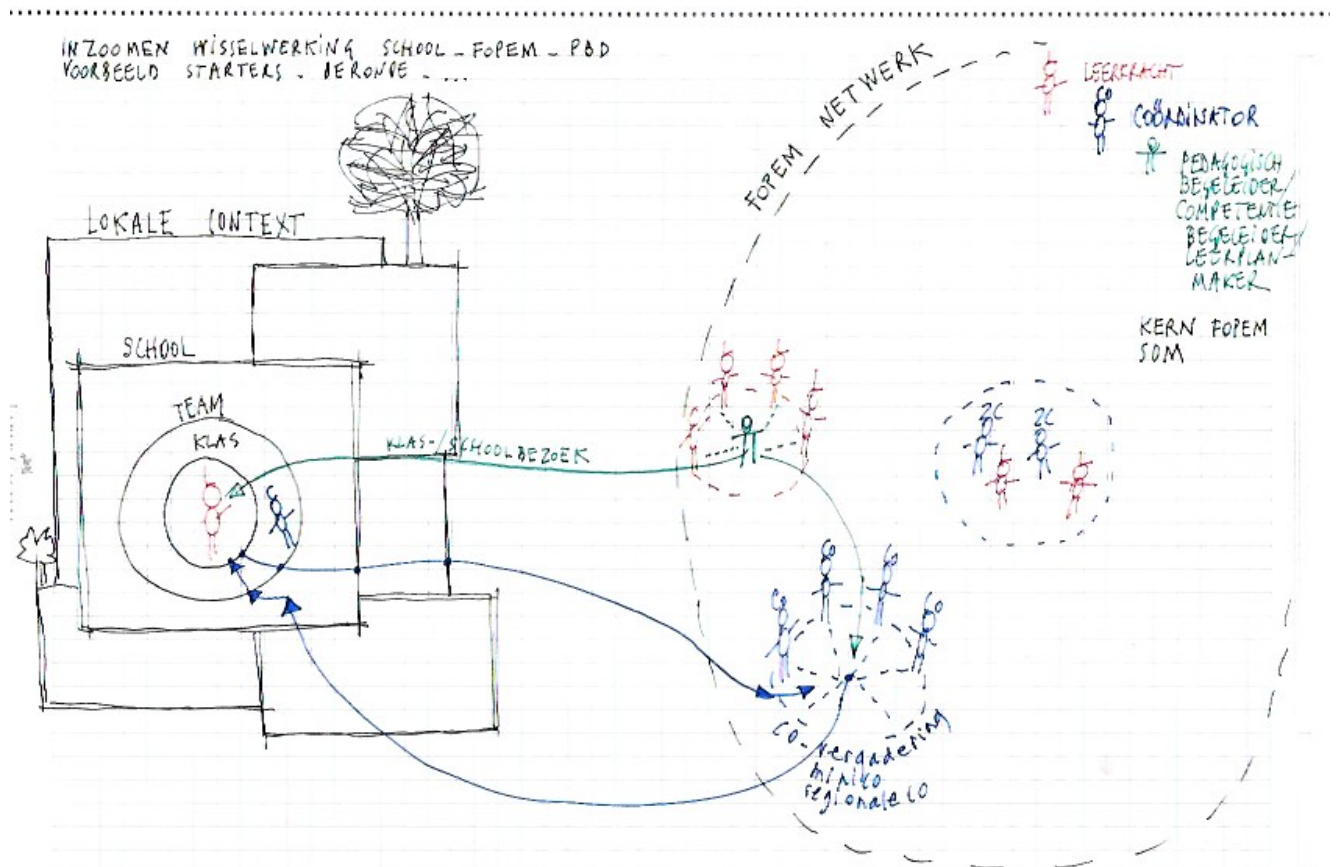 INZOOMEN WISSELWERKING SCHOOL - FOPEM - PBD
VOORBEELD STARTERS - DERONDE - ...
FOPEM NETWERK
LEERKRACHT
CO
COÖRDINATOR
PEDAGOGISCH
BEGELEIDER/
COMPETENTIE
BEGELEIDER/
LEERPLAN-
MAKER
LOKALE CONTEXT
KERN FOPEM
SOM
SCHOOL
TEAM
KLAS
KLAS-/SCHOOLBEZOEK
ZC ZC
CO
CO CO
CO CO
CO-vergadering
minico
regionale CO